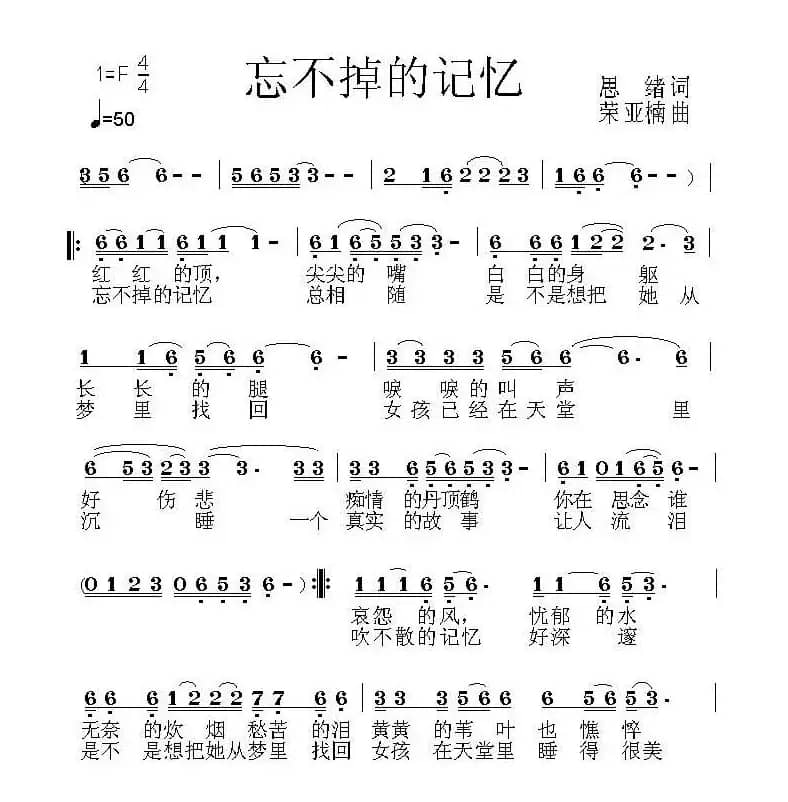 忘不掉的记忆
1=F 4/4
♩=50
思绪词
荣亚楠曲
356 6-- | 56533-- | 2 162223 | 166 6-- ) |
‖: 6611611 1- | 61655333- | 6 66122 2· 3 |
红 红 的顶， 尖尖的 嘴 白 白的身 躯
忘不掉的记忆 总相 随 是 不是想把 她 从
1 16 566 6- | 3333 553 6· 6 |
长 长 的 腿 唳 唳的叫 声
梦 里 找 回 女孩已经在天堂 里
6 53 233 3· 33 | 33 656535· | 6101656· |
好 伤 悲 痴情 的丹顶鹤 你在 思念 谁
沉 睡 一个 真实 的故 事 让人 流 泪
(0123 0653 6- ) :‖: 1116 65· | 11 6 53· |
哀怨 的风， 忧郁 的水
吹不散的记忆 好深 邃
66 6 1222 77 66 | 33 3566 56 565 |
无奈 的炊 烟 愁苦 的泪 黄黄 的苇 叶 也 憔悴
是不 是想把她从梦里 找回 女孩 在天堂里 睡 得 很美